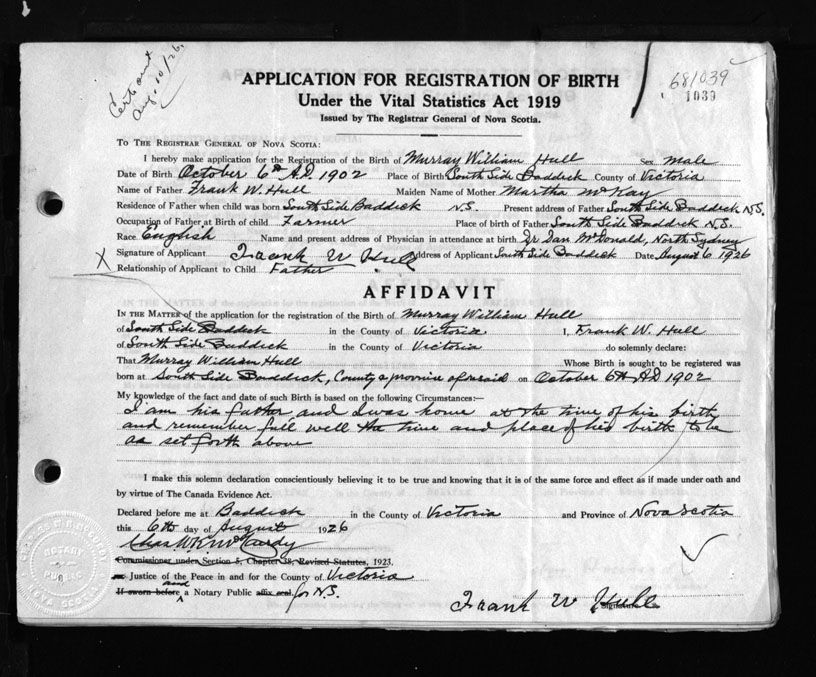 Cert sent
Aug. 10/26.
681039
1039
APPLICATION FOR REGISTRATION OF BIRTH
Under the Vital Statistics Act 1919
Issued by The Registrar General of Nova Scotia.
To The Registrar General of Nova Scotia:
I hereby make application for the Registration of the Birth of Murray William Hull Sex male
Date of Birth October 6th A.D. 1902 Place of Birth South Side Baddeck County of Victoria
Name of Father Frank W. Hull Maiden Name of Mother Martha McKay
Residence of Father when child was born South Side Baddeck N.S. Present address of Father South Side Baddeck N.S.
Occupation of Father at Birth of child Farmer Place of birth of Father South Side Baddeck N.S.
Race English Name and present address of Physician in attendance at birth Dr Dan McDonald, North Sydney
X Signature of Applicant Frank W Hull Address of Applicant South Side Baddeck Date August 6 1926
Relationship of Applicant to Child Father
AFFIDAVIT
In the Matter of the application for the registration of the Birth of Murray William Hull
of South Side Baddeck in the County of Victoria I, Frank W. Hull
of South Side Baddeck in the County of Victoria do solemnly declare:
That Murray William Hull Whose Birth is sought to be registered was
born at South Side Baddeck, County & province aforesaid on October 6th A.D 1902
My knowledge of the fact and date of such Birth is based on the following Circumstances:—
I am his father and I was home at the time of his birth
and remember full well the time and place of his birth to be
as set forth above
I make this solemn declaration conscientiously believing it to be true and knowing that it is of the same force and effect as if made under oath and
by virtue of The Canada Evidence Act.
Declared before me at Baddeck in the County of Victoria and Province of Nova Scotia
this 6th day of August 1926
Chas
Commissioner under Section 5, Chapter 38, Revised Statutes, 1923.
or Justice of the Peace in and for the County of Victoria
If sworn before and a Notary Public affix seal. for N.S.
Frank W Hull
Signature
NOTARY
PUBLIC
NOVA SCOTIA